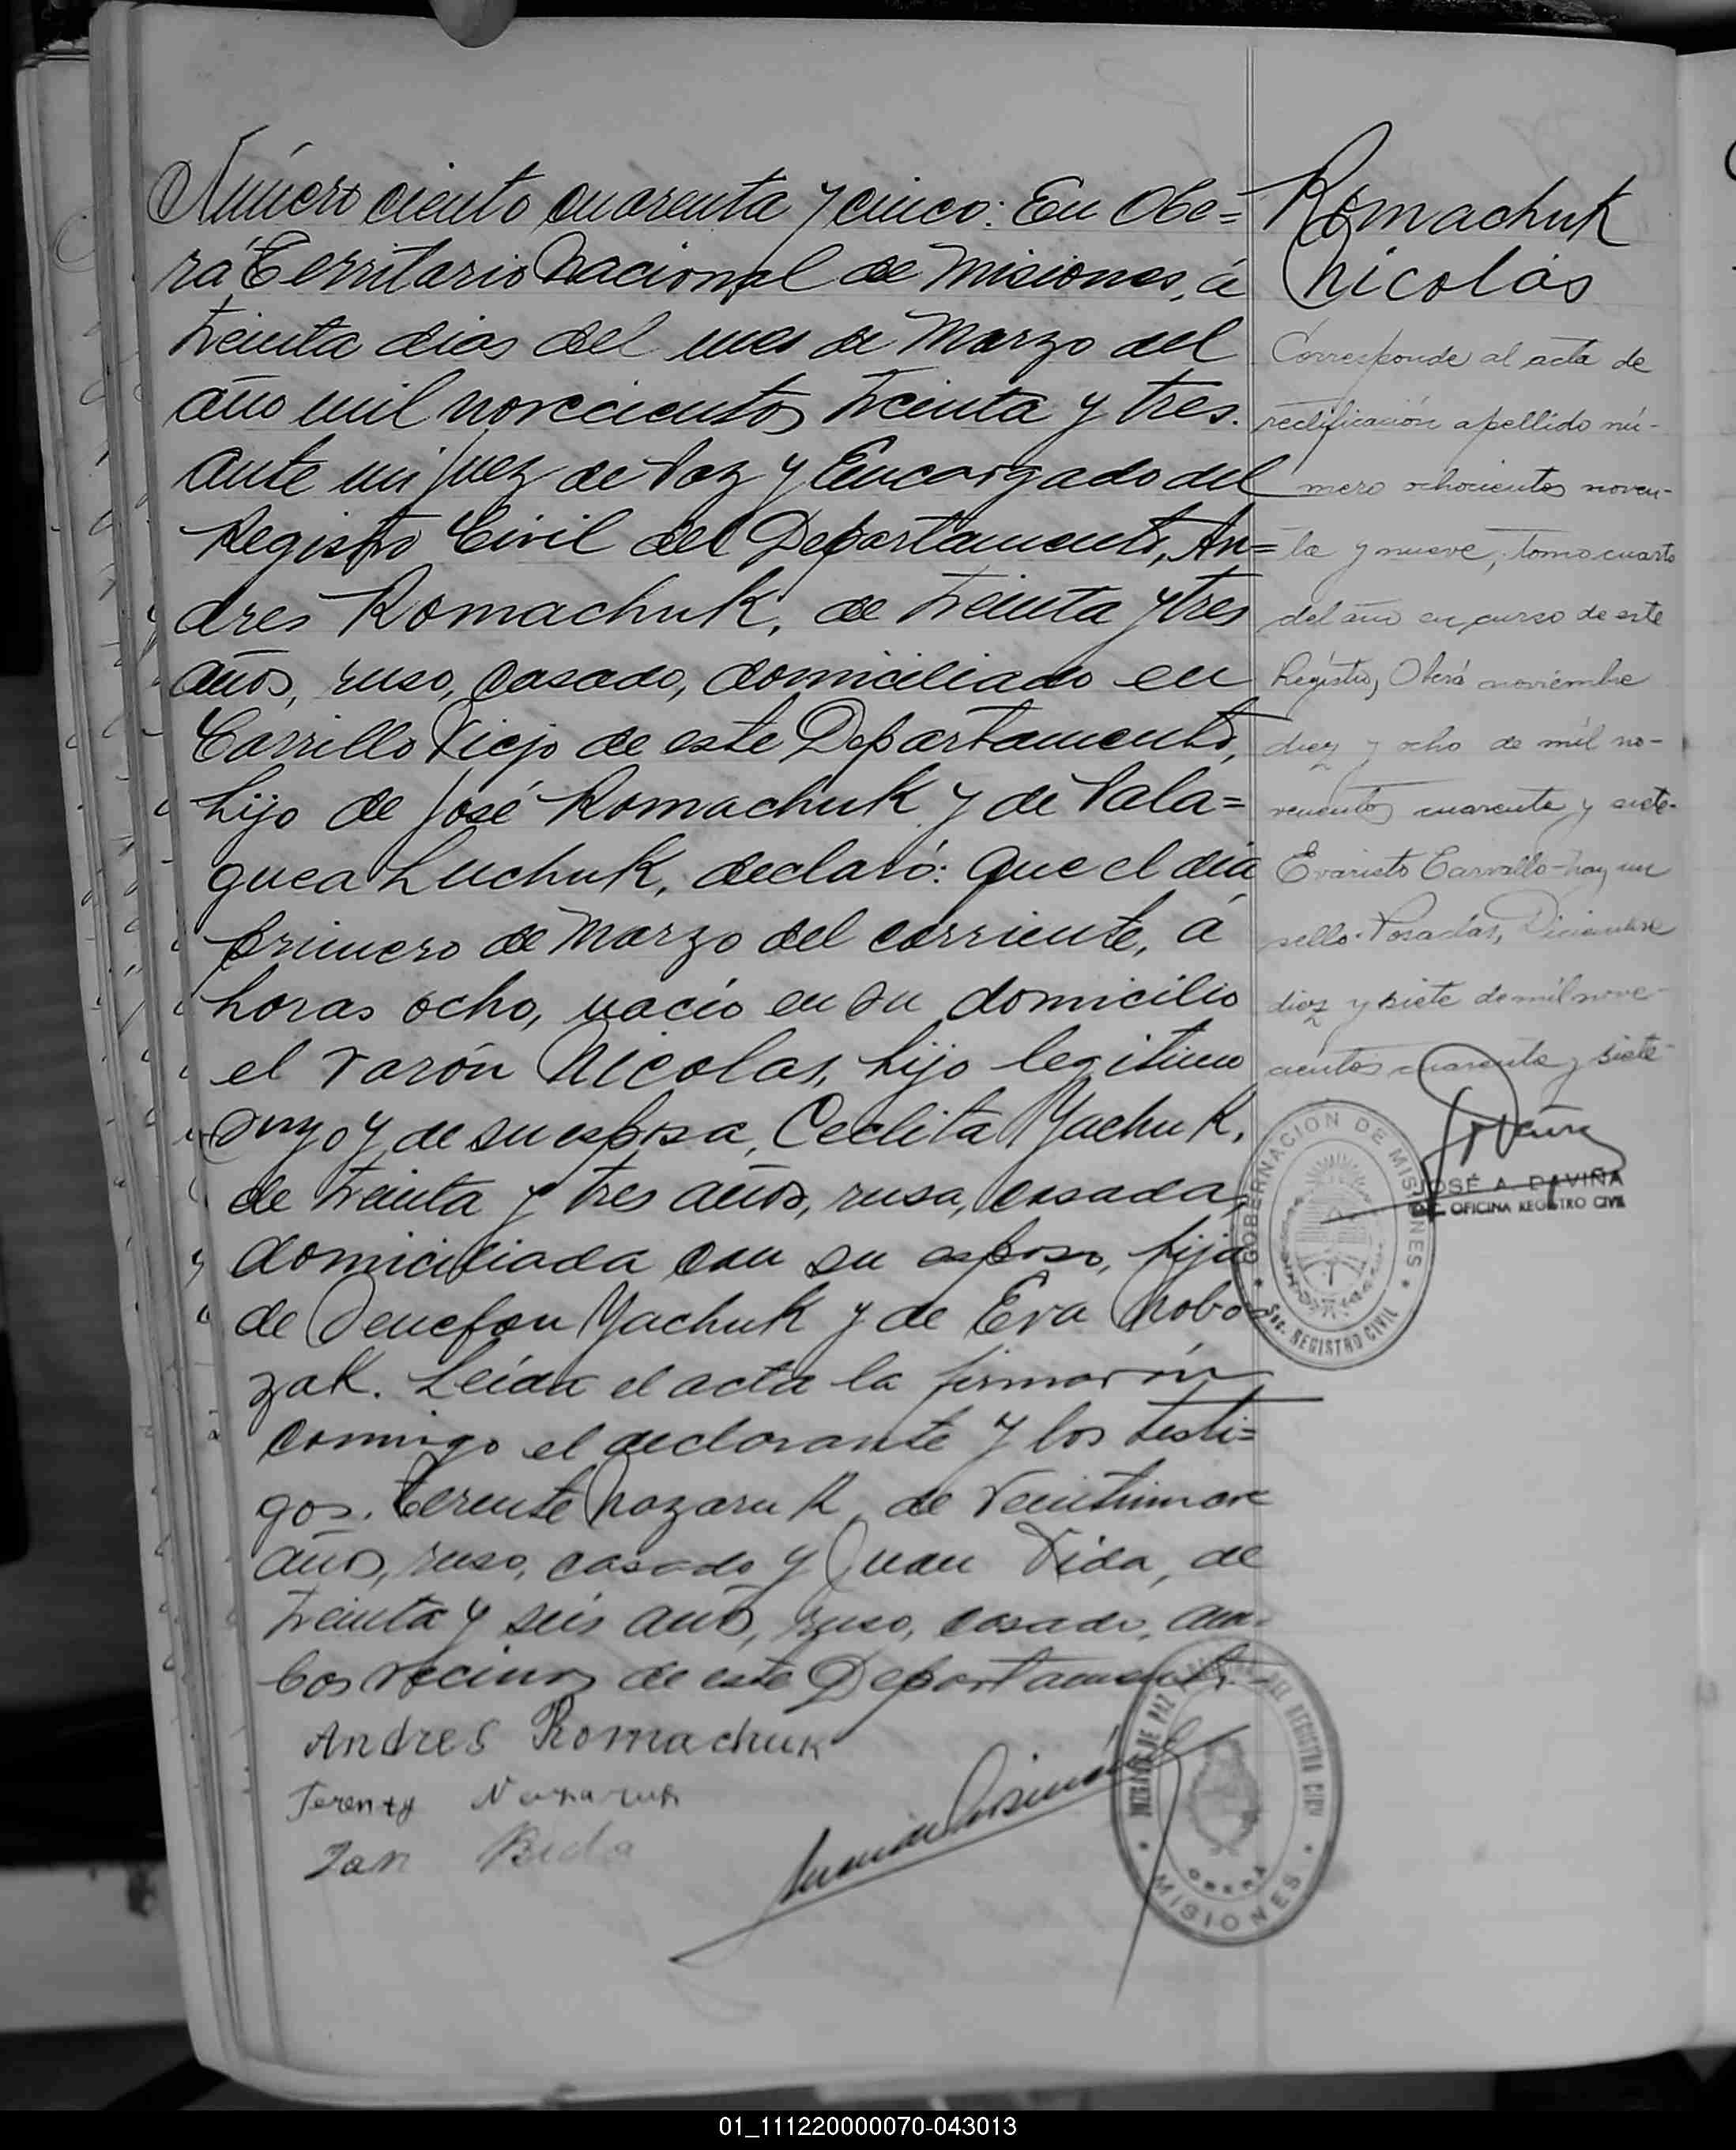 Número ciento cuarenta y cinco: En Obe=
rá Territorio Nacional de Misiones, á
treinta dias del mes de Marzo del
año mil novecientos treinta y tres.
ante mi Juez de Paz y Encargado del
Registro Civil del Departamento, An=
dres Romachuk, de treinta y tres
años, ruso, casado, domiciliado en
Carrillo Viejo de este Departamento,
hijo de José Romachuk y de Pala=
guea Luchuk, declaró: Que el dia
primero de Marzo del corriente, á
horas ocho, nació en su domicilio
el varón Nicolas, hijo legitimo
suyo y de su esposa, Ceclita Yachuk,
de treinta y tres años, rusa, casada,
domiciliada con su esposo, hija
de Senefon Yachuk y de Eva Nobo
zak. Leida el acta la firmarón
comigo el declarante y los testi=
gos. Terente Nazaruk, de veintinueve
años, ruso, casado y Juan Vida, de
treinta y seis años, ruso, casado, am-
bos vecinos de este Departamento.-
Andres Romachuk
Terenty Nazaruk
Jan Bida
JUZGADO DE PAZ DEL REGISTRO CIVIL
OBERÁ
MISIONES
Romachuk
Nicolás
Corresponde al acta de
rectificación apellido nú-
mero ochocientos noven-
ta y nueve, tomo cuarto
del año en curso de este
Registro, Oberá noviembre
diez y ocho de mil no-
vecientos cuarenta y siete-
Evaristo Carvallo-hay un
sello. Posadas, Diciembre
diez y siete de mil nove-
cientos cuarenta y siete-
GOBERNACION DE MISIONES
Sec. REGISTRO CIVIL
JOSÉ A. DAVIÑA
OFICINA REGISTRO CIVIL
01_111220000070-043013